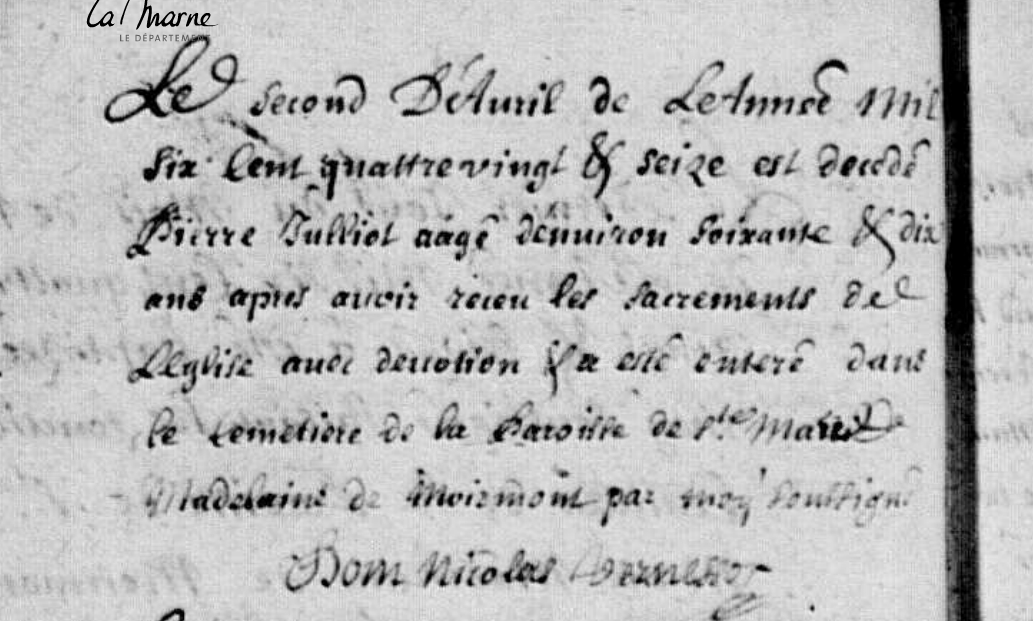 La Marne
LE DÉPARTEMENT
Le second D'Auril de LeAnneé Mil
six Cent quattre vingt & seize est decedé
Pierre Julliot aagé denuiron soixante & dix
ans apres auoir receu les sacrements de
LEglise auec deuotion & a esté enteré dans
le Cemetiere de la Paroisse de Ste Marie
Madelaine de Moiremont par moy soussigné
Dom Nicolas